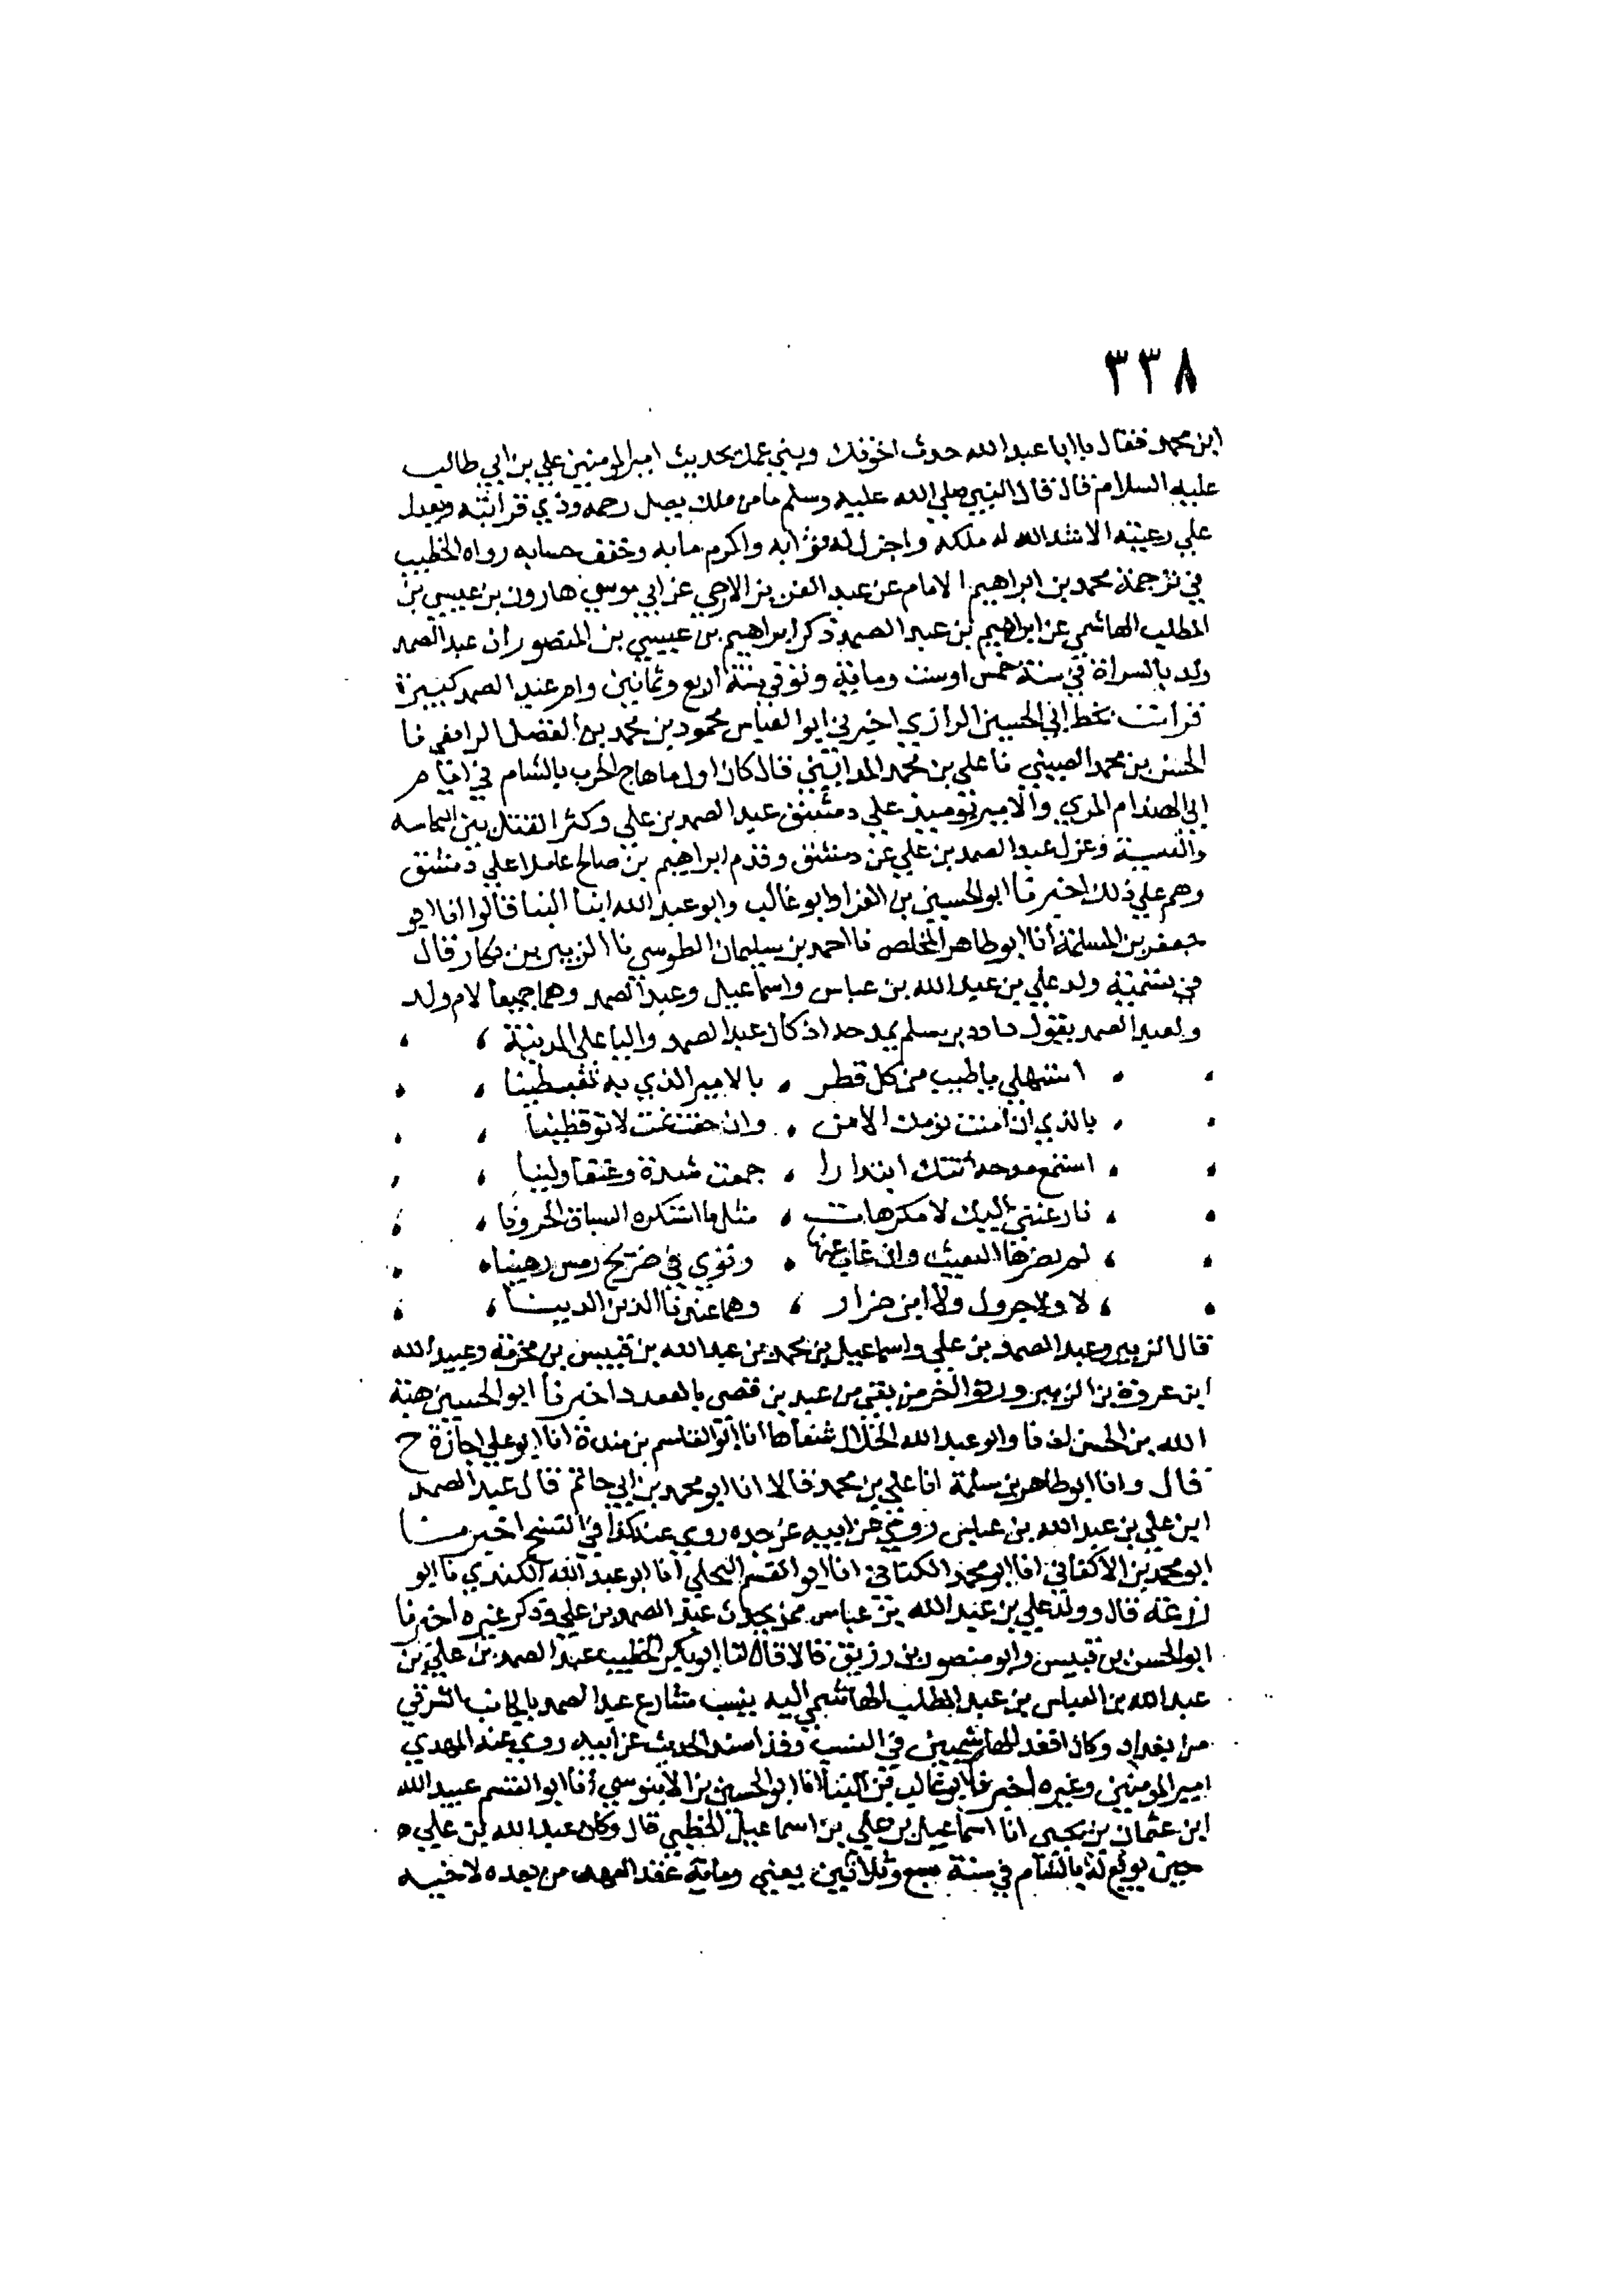 ٣٣٨
ابن محمد فقال يا ابا عبد الله حدث اخوتك وبني عمك بحديث امير المومنين علي بن ابي طالب
عليه السلام قال قال النبي صلي الله عليه وسلم ما من ملك يصل رحمه وذي قرابته ويعدل
علي رعيته الا شد الله له ملكه واجزل له ثوابه واكرم مابه وخفف حسابه رواه الخطيب
في ترجمة محمد بن ابراهيم الامام عن عبد العزيز الازجي عن ابي موسي هارون بن عيسي بن
المطلب الهاشمي عن ابراهيم بن عبد الصمد ذكر ابراهيم بن عيسي بن المنصور ان عبد الصمد
ولد بالسراة في سنة خمس اوست وماية وتوفي سنة اربع وثمانين وام عبد الصمد كبيرة
قرات بخط ابي الحسين الرازي اخبرني ابو العباس محمود بن محمد بن الفضل الرافقي نا
الحسن بن محمد نا علي بن محمد المدايني قال كان اول ما هاج الحرب بالشام في ايام
ابي الهندام المري والامير يوميذ علي دمشق عبد الصمد بن علي وكثر القتل بين اليمانيه
والقيسية وعزل عبد الصمد بن علي عن دمشق وقدم ابراهيم بن صالح عاملا علي دمشق
وهم علي ذلك اخبرنا ابو الحسين بن الفرا وابو غالب وابو عبد الله ابنا البنا قالوا انا ابو
جعفر بن المسلمة انا ابو طاهر المخلص نا احمد بن سليمان الطوسي نا الزبير بن بكار قال
في تسمية ولد علي بن عبد الله بن عباس واسماعيل وعبد الصمد وهما جميعا لام ولد
ولعبد الصمد يقول داود بن سلم يمدحه اذ كان عبد الصمد واليا علي المدينة ،
استهلي يا طيب من كل قطر ، بالامير الذي به تغبطينا ،
بالذي ان امنت نومك الامن ، وان خفت نمت لا توقظينا ،
استمع مدحة اتتك ابتدارا ، جمعت شدة وعنفا ولينا ،
نازعتني اليك لا مكرهات ، مثل ما استكره السباق الحرونا ،
لم يضرها المغيث وان غاب عنها ، وثوي في ضريح رمس رهينا ،
لا ولا جرول ولا ابن ضرار ، وهما عندنا الذين الدينا ،
قال الزبير وعبد الصمد بن علي واسماعيل بن محمد بن عبد الله بن قيس بن مخرمة وعبيد الله
ابن عروة بن الزبير من بقي من عبد بن قصي بالقعدد اخبرنا ابو الحسين هبة
الله بن الحسن اذنا وابو عبد الله الخلال شفاها انا ابو القاسم بن مندة انا ابو علي اجازة ح
قال وانا ابو طاهر بن سلمة انا علي بن محمد قالا انا ابو محمد بن ابي حاتم قال عبد الصمد
ابن علي بن عبد الله بن عباس روي عن ابيه عن جده روي عنه كذا في النسخ اخبرنا
ابو محمد بن الاكفاني انا ابو محمد الكتاني انا ابو القسم البجلي انا ابو عبد الله الكندي نا ابو
زرعة قال وولد علي بن عبد الله بن عباس ممن يحدث عبد الصمد بن علي وذكر غيره اخبرنا
ابو الحسن بن قبيس وابو منصور بن زريق قالا قال لنا ابو بكر الخطيب عبد الصمد بن علي بن
عبد الله بن العباس بن عبد المطلب الهاشمي اليه ينسب شارع عبد الصمد بالجانب الشرقي
من بغداد وكان اقعد الهاشميين في النسب وقد اسند الحديث عن ابيه روي عنه المهدي
امير المومنين وغيره اخبرنا ابو غالب بن البنا انا ابو الحسين بن الابنوسي انا ابو القسم عبيد الله
ابن عثمان بن يحيي انا اسماعيل بن علي بن اسماعيل الخطبي قال وكان عبد الله بن علي
حين بويع له بالشام في سنة سبع وثلاثين يعني وماية عقد العهد من بعده لاخيه